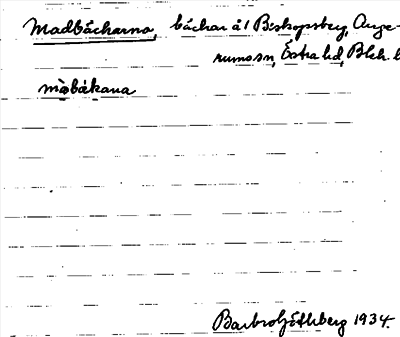 Madbäckarna, bäckar å 1 Biskopsberg, Auge-
rums sn, Östra hd, Blek. l
màbäkana
Barbro Göthberg 1934.